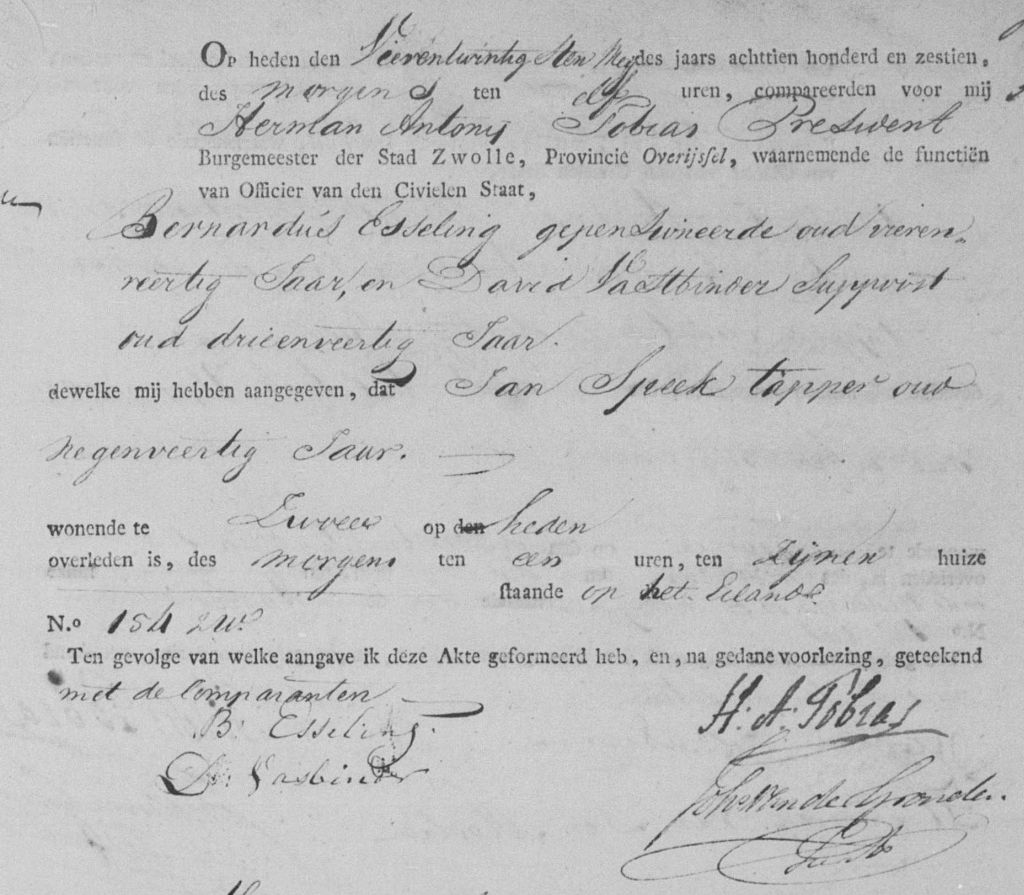 Op heden den Vierentwintigsten Mey des jaars achttien honderd en zestien,
des morgens ten elf uren, compareerden voor mij
Herman Antonij Tobias President
Burgemeester der Stad Zwolle, Provincie Overijssel, waarnemende de functiën
van Officier van den Civielen Staat,
Bernardus Esseling gepensioneerde oud vieren
veertig Jaar, en David Vastbinder Suppoost
oud drieenveertig Jaar.
dewelke mij hebben aangegeven, dat Jan Speek tapper oud
negenveertig Jaar.
wonende te Zwolle op den heden
overleden is, des morgens ten een uren, ten zijnen huize
staande op het Eiland
N.o 154 zw.
Ten gevolge van welke aangave ik deze Akte geformeerd heb, en, na gedane voorlezing, geteekend
met de Comparanten
B: Esseling. H. A. Tobias
D: Vasbinder